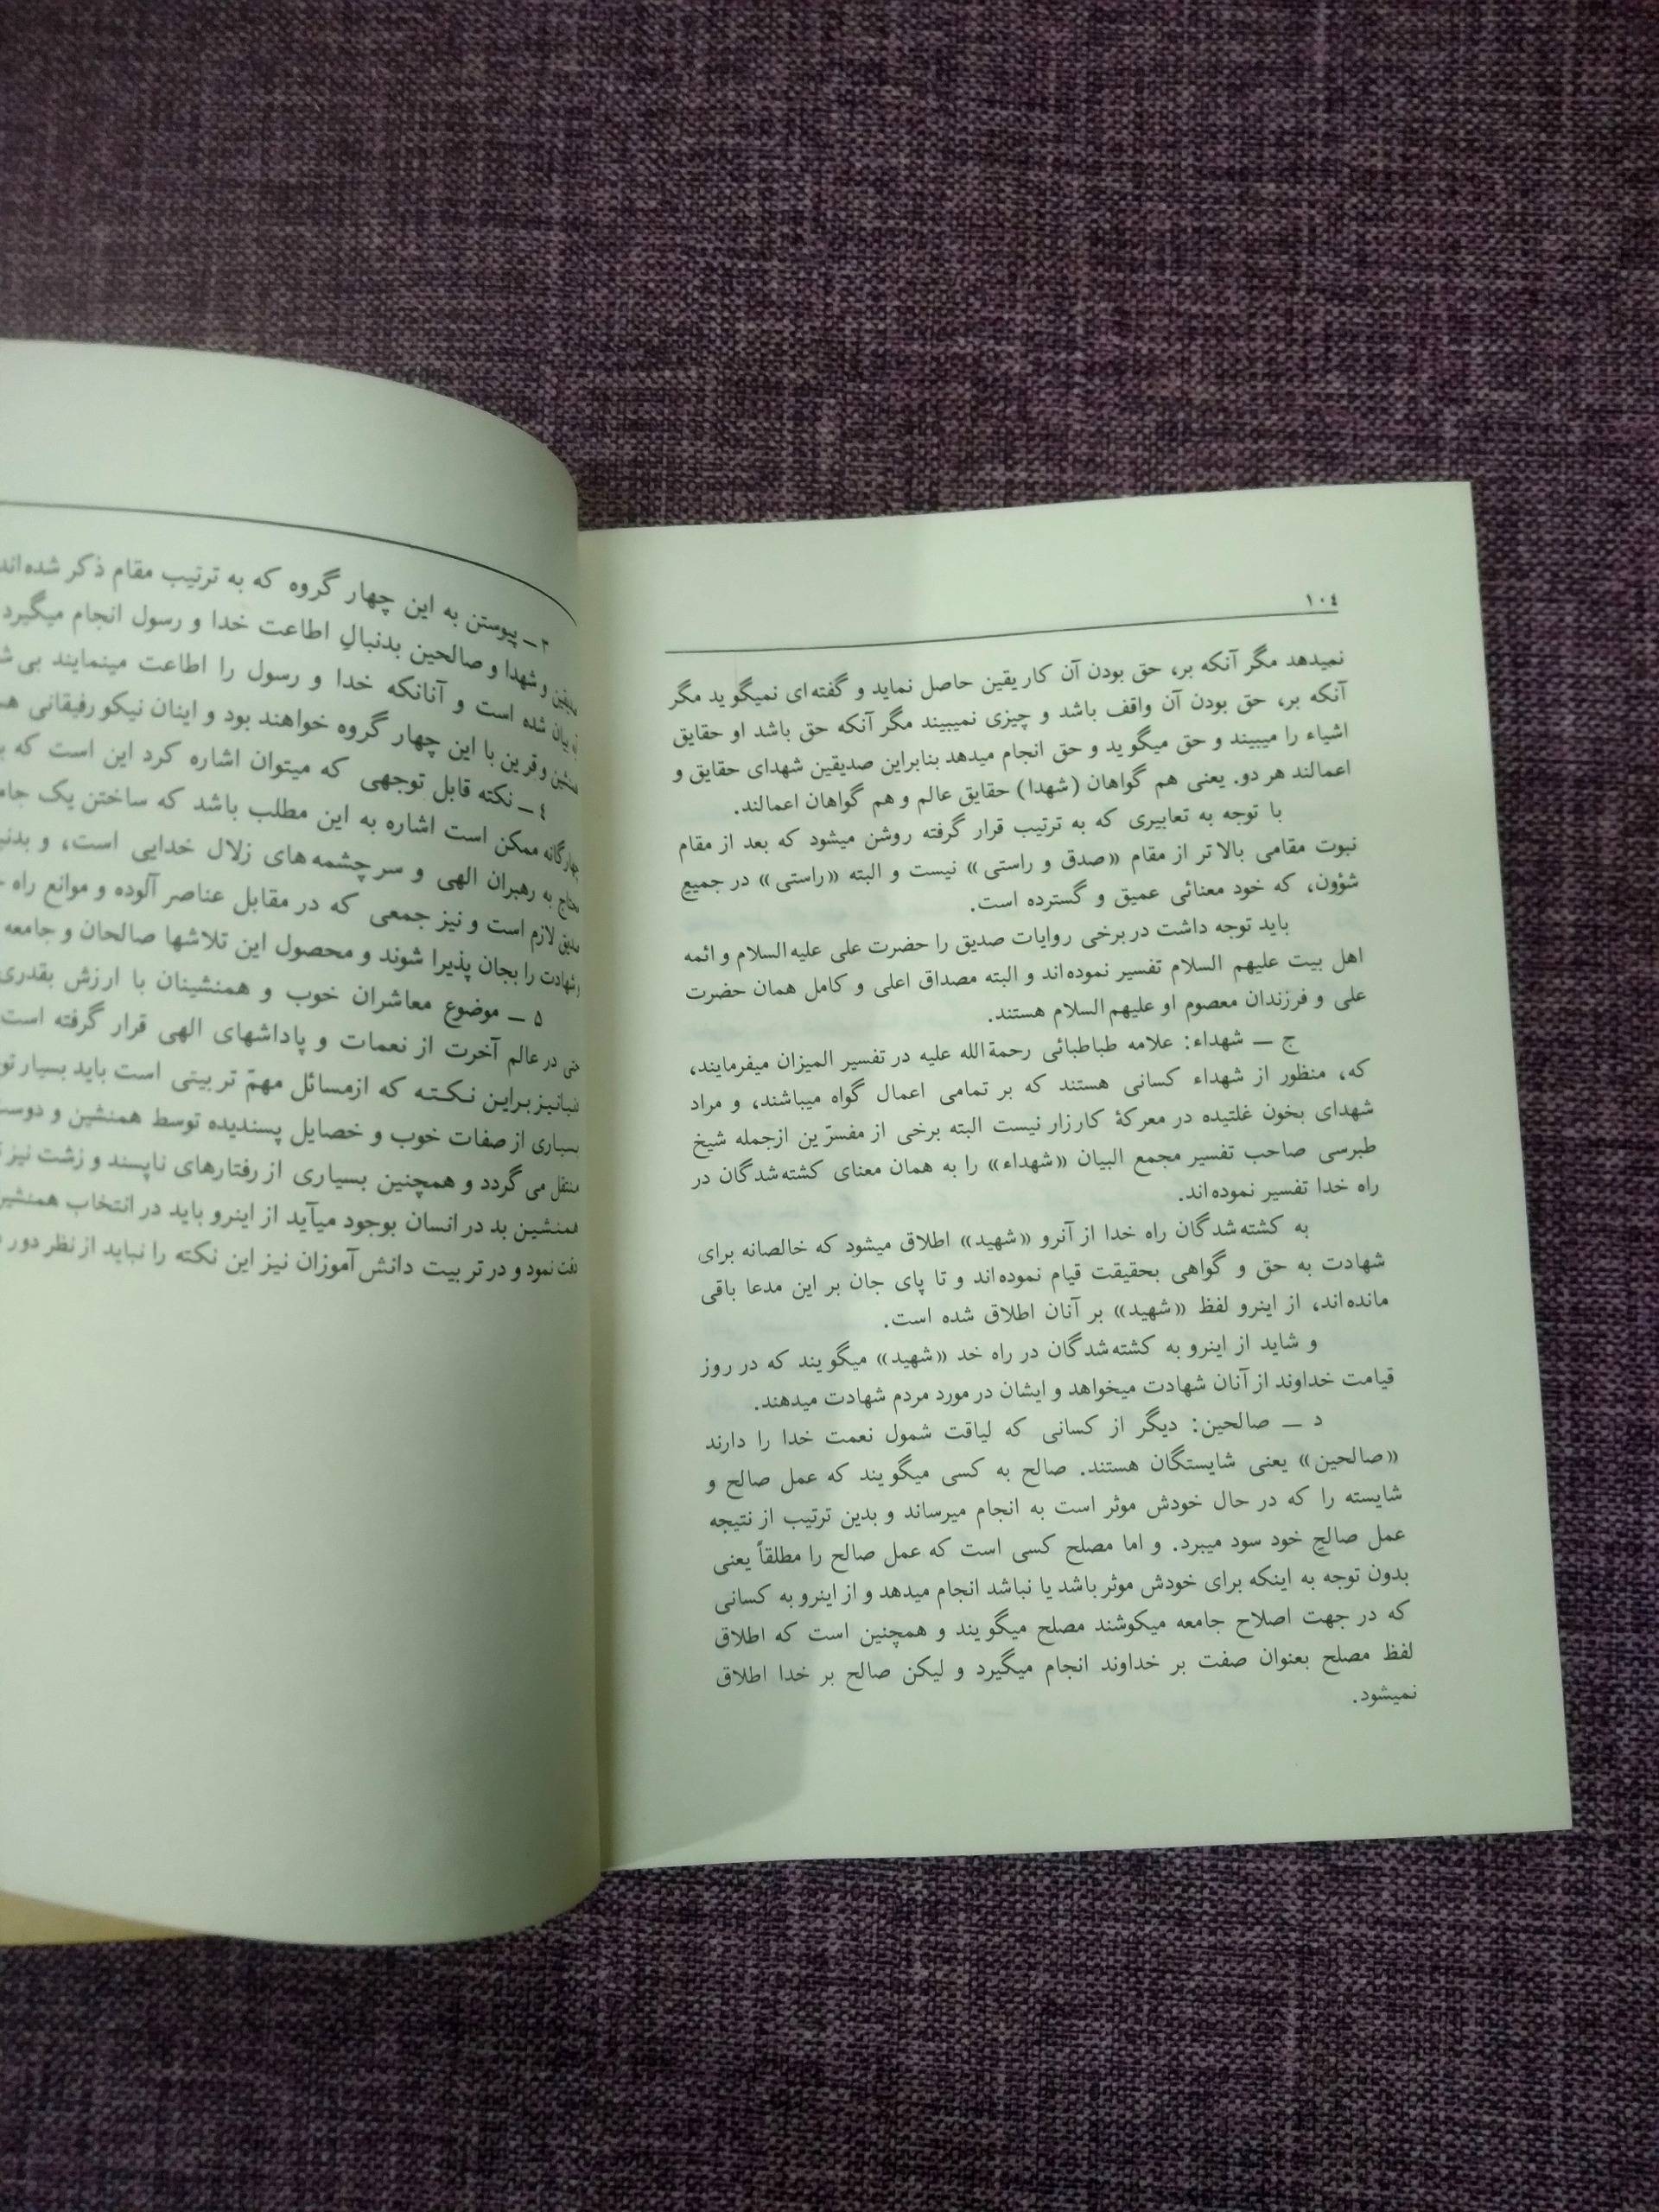 ١٠٤
نمیدهد مگر آنکه بر، حق بودن آن کار یقین حاصل نماید و گفته‌ای نمیگوید مگر
آنکه بر، حق بودن آن واقف باشد و چیزی نمیبیند مگر آنکه حق باشد او حقایق
اشیاء را میبیند و حق میگوید و حق انجام میدهد بنابراین صدیقین شهدای حقایق و
اعمالند هر دو. یعنی هم گواهان (شهدا) حقایق عالم و هم گواهان اعمالند.
با توجه به تعابیری که به ترتیب قرار گرفته روشن میشود که بعد از مقام
نبوت مقامی بالاتر از مقام «صدق و راستی» نیست و البته «راستی» در جمیع
شؤون، که خود معنائی عمیق و گسترده است.
باید توجه داشت در برخی روایات صدیق را حضرت علی علیه السلام و ائمه
اهل بیت علیهم السلام تفسیر نموده‌اند و البته مصداق اعلی و کامل همان حضرت
علی و فرزندان معصوم او علیهم السلام هستند.
ج ــ شهداء: علامه طباطبائی رحمة الله علیه در تفسیر المیزان میفرمایند،
که، منظور از شهداء کسانی هستند که بر تمامی اعمال گواه میباشند، و مراد
شهدای بخون غلتیده در معرکهٔ کارزار نیست البته برخی از مفسرّین ازجمله شیخ
طبرسی صاحب تفسیر مجمع البیان «شهداء» را به همان معنای کشته‌شدگان در
راه خدا تفسیر نموده‌اند.
به کشته‌شدگان راه خدا از آنرو «شهید» اطلاق میشود که خالصانه برای
شهادت به حق و گواهی بحقیقت قیام نموده‌اند و تا پای جان بر این مدعا باقی
مانده‌اند، از اینرو لفظ «شهید» بر آنان اطلاق شده است.
و شاید از اینرو به کشته‌شدگان در راه خد «شهید» میگویند که در روز
قیامت خداوند از آنان شهادت میخواهد و ایشان در مورد مردم شهادت میدهند.
د ــ صالحین: دیگر از کسانی که لیاقت شمول نعمت خدا را دارند
«صالحین» یعنی شایستگان هستند. صالح به کسی میگویند که عمل صالح و
شایسته را که در حال خودش موثر است به انجام میرساند و بدین ترتیب از نتیجه
عمل صالح خود سود میبرد. و اما مصلح کسی است که عمل صالح را مطلقاً یعنی
بدون توجه به اینکه برای خودش موثر باشد یا نباشد انجام میدهد و از اینرو به کسانی
که در جهت اصلاح جامعه میکوشند مصلح میگویند و همچنین است که اطلاق
لفظ مصلح بعنوان صفت بر خداوند انجام میگیرد و لیکن صالح بر خدا اطلاق
نمیشود.
٣ ــ پیوستن به این چهار گروه که به ترتیب مقام ذکر شده‌اند
و شهدا و صالحین بدنبالِ اطاعت خدا و رسول انجام میگیرد
بیان شده است و آنانکه خدا و رسول را اطاعت مینمایند
و قرین با این چهار گروه خواهند بود و اینان نیکو رفیقانی
٤ ــ نکته قابل توجهی که میتوان اشاره کرد این است که
چهارگانه ممکن است اشاره به این مطلب باشد که ساختن یک
محتاج به رهبران الهی و سرچشمه‌های زلال خدایی است، و
صدیق لازم است و نیز جمعی که در مقابل عناصر آلوده و موانع راه
شهادت را بجان پذیرا شوند و محصول این تلاشها صالحان و جامعه
٥ ــ موضوع معاشران خوب و همنشینان با ارزش بقدری
حتی در عالم آخرت از نعمات و پاداشهای الهی قرار گرفته است
براین نکته که ازمسائل مهمّ تربیتی است باید بسیار
بسیاری از صفات خوب و خصایل پسندیده توسط همنشین و
منتقل می گردد و همچنین بسیاری از رفتارهای ناپسند و زشت نیز
همنشین بد در انسان بوجود میآید از اینرو باید در انتخاب
دقت نمود و در تربیت دانش آموزان نیز این نکته را نباید از نظر دور